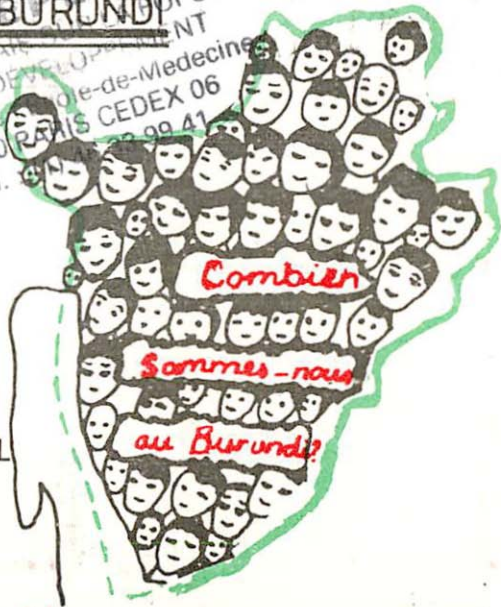 BURUNDI
DEVELOPPEMENT
ole-de-Medecine
PARIS CEDEX 06
99 41
Combien
Sommes-nous
au Burundi?
L